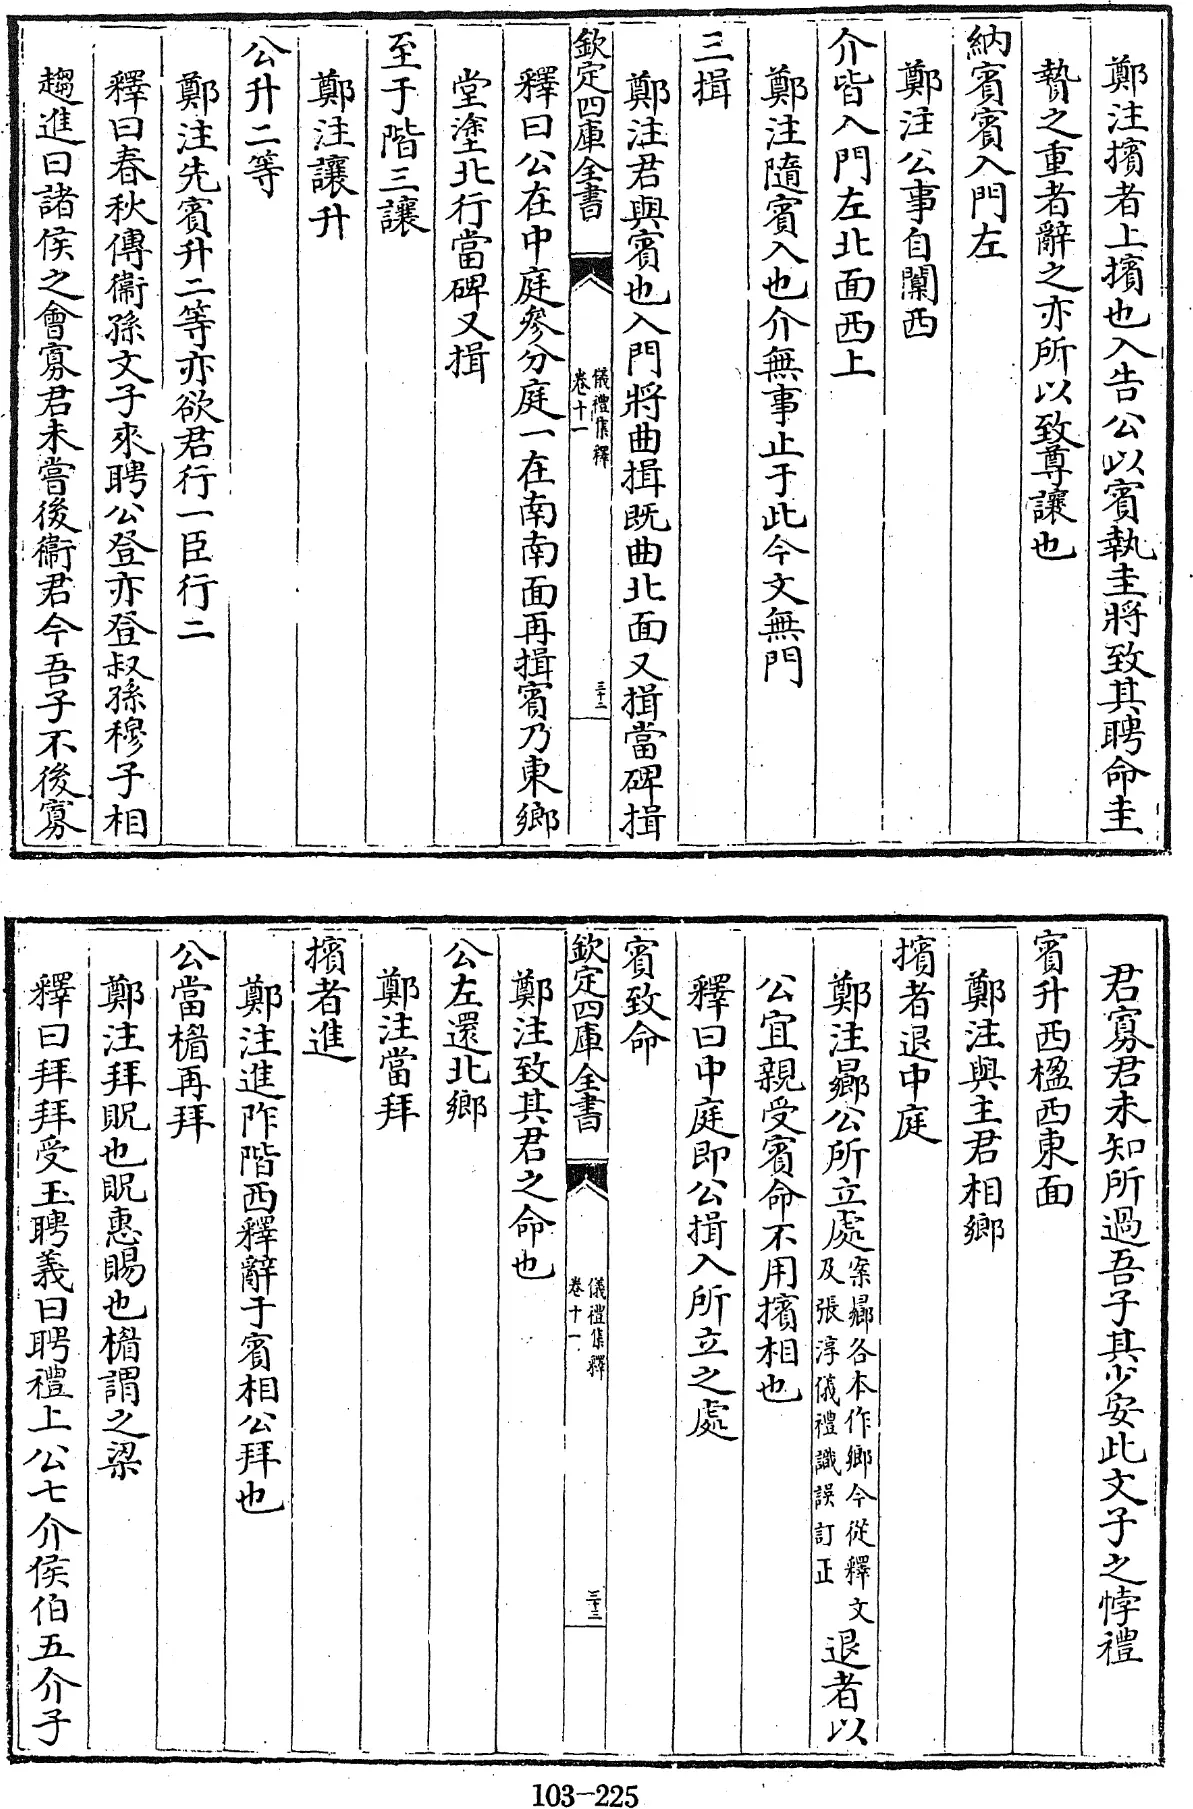 鄭注擯者上擯也入告公以賓執圭將致其聘命圭
贄之重者辭之亦所以致尊讓也
納賓賓入門左
鄭注公事自闑西
介皆入門左北面西上
鄭注隨賓入也介無事止于此今文無門
三揖
鄭注君與賓也入門將曲揖既曲北面又揖當碑揖
欽定四庫全書
儀禮集釋
卷十一
三十二
釋曰公在中庭參分庭一在南南面再揖賓乃東鄉
堂塗北行當碑又揖
至于階三讓
鄭注讓升
公升二等
鄭注先賓升二等亦欲君行一臣行二
釋曰春秋傳衞孫文子來聘公登亦登叔孫穆子相
趨進曰諸侯之會寡君未嘗後衞君今吾子不後寡
君寡君未知所過吾子其少安此文子之悖禮
賓升西楹西東面
鄭注與主君相鄉
擯者退中庭
鄭注曏公所立處案曏各本作鄉今從釋文
及張淳儀禮識誤訂正
退者以
公宜親受賓命不用擯相也
釋曰中庭即公揖入所立之處
賓致命
欽定四庫全書
儀禮集釋
卷十一
三十三
鄭注致其君之命也
公左還北鄉
鄭注當拜
擯者進
鄭注進阼階西釋辭于賓相公拜也
公當楣再拜
鄭注拜貺也貺惠賜也楣謂之梁
釋曰拜拜受玉聘義曰聘禮上公七介侯伯五介子
103-225